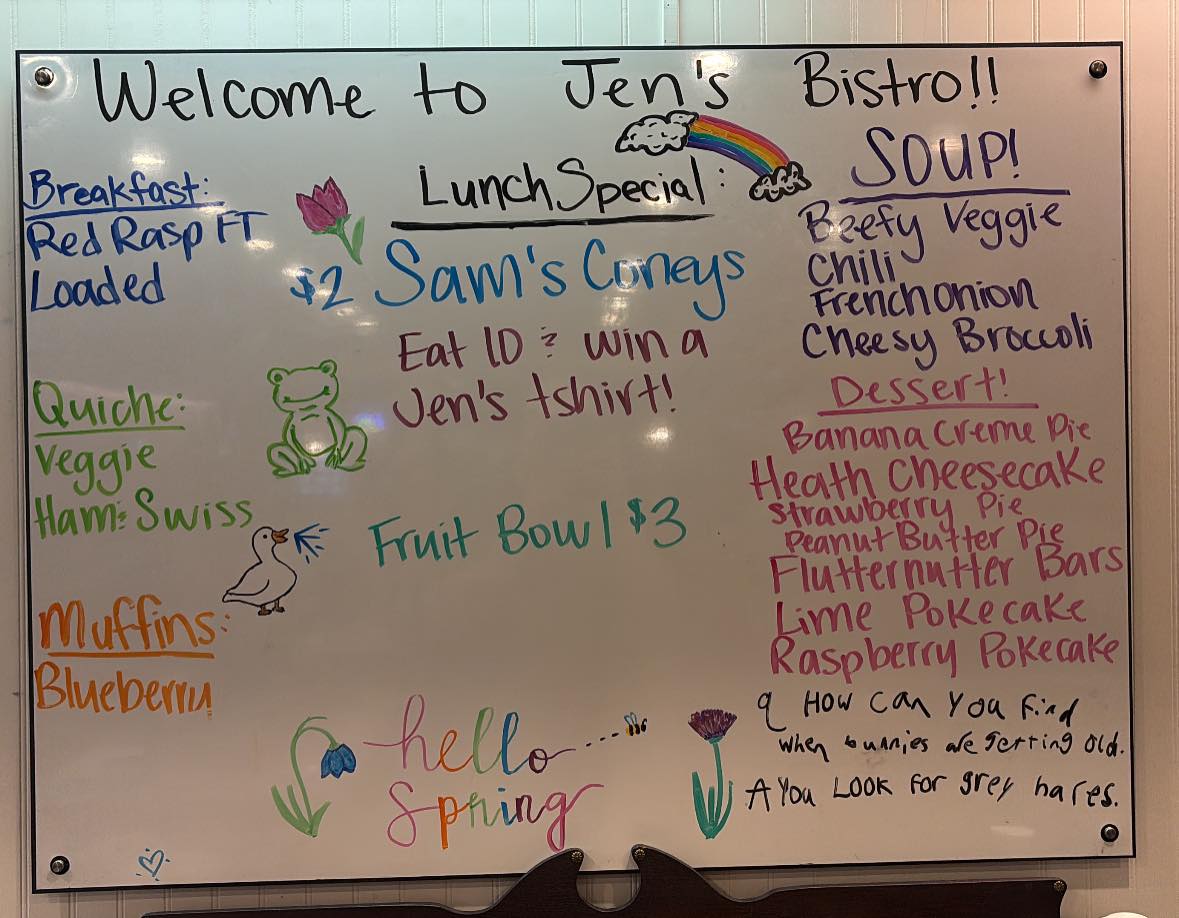 Welcome to Jen's Bistro!!
Breakfast:
Red Rasp FT
Loaded
Quiche:
Veggie
Ham & Swiss
Muffins:
Blueberry
Lunch Special:
$2 Sam's Coneys
Eat 10 & win a
Jen's tshirt!
Fruit Bowl $3
hello
Spring
SOUP!
Beefy Veggie
Chili
French Onion
Cheesy Broccoli
Dessert!
Banana Creme Pie
Heath Cheesecake
Strawberry Pie
Peanut Butter Pie
Flutternutter Bars
Lime Pokecake
Raspberry Pokecake
Q How can you find
when bunnies are getting old.
A You Look for grey hares.